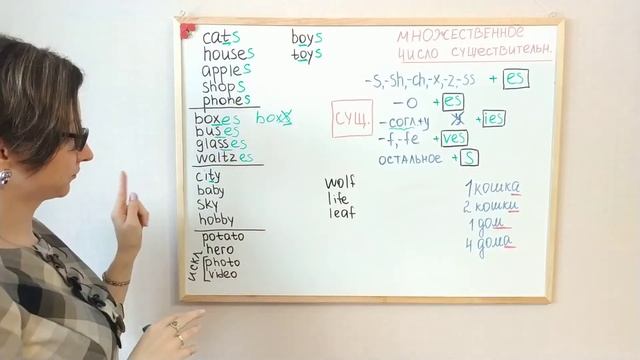 cats
houses
apples
shops
phones
boxes boxX
buses
glasses
waltzes
city
baby
sky
hobby
potato
hero
photo
video
искл
boys
toys
wolf
life
leaf
МНОЖЕСТВЕННОЕ
ЧИСЛО СУЩЕСТВИТЕЛЬН.
СУЩ.
-s,-sh,-ch,-x,-z,-ss + es
-o + es
-согл.+y + ies
-f,-fe + ves
остальное + s
1 кошка
2 кошки
1 дом
4 дома